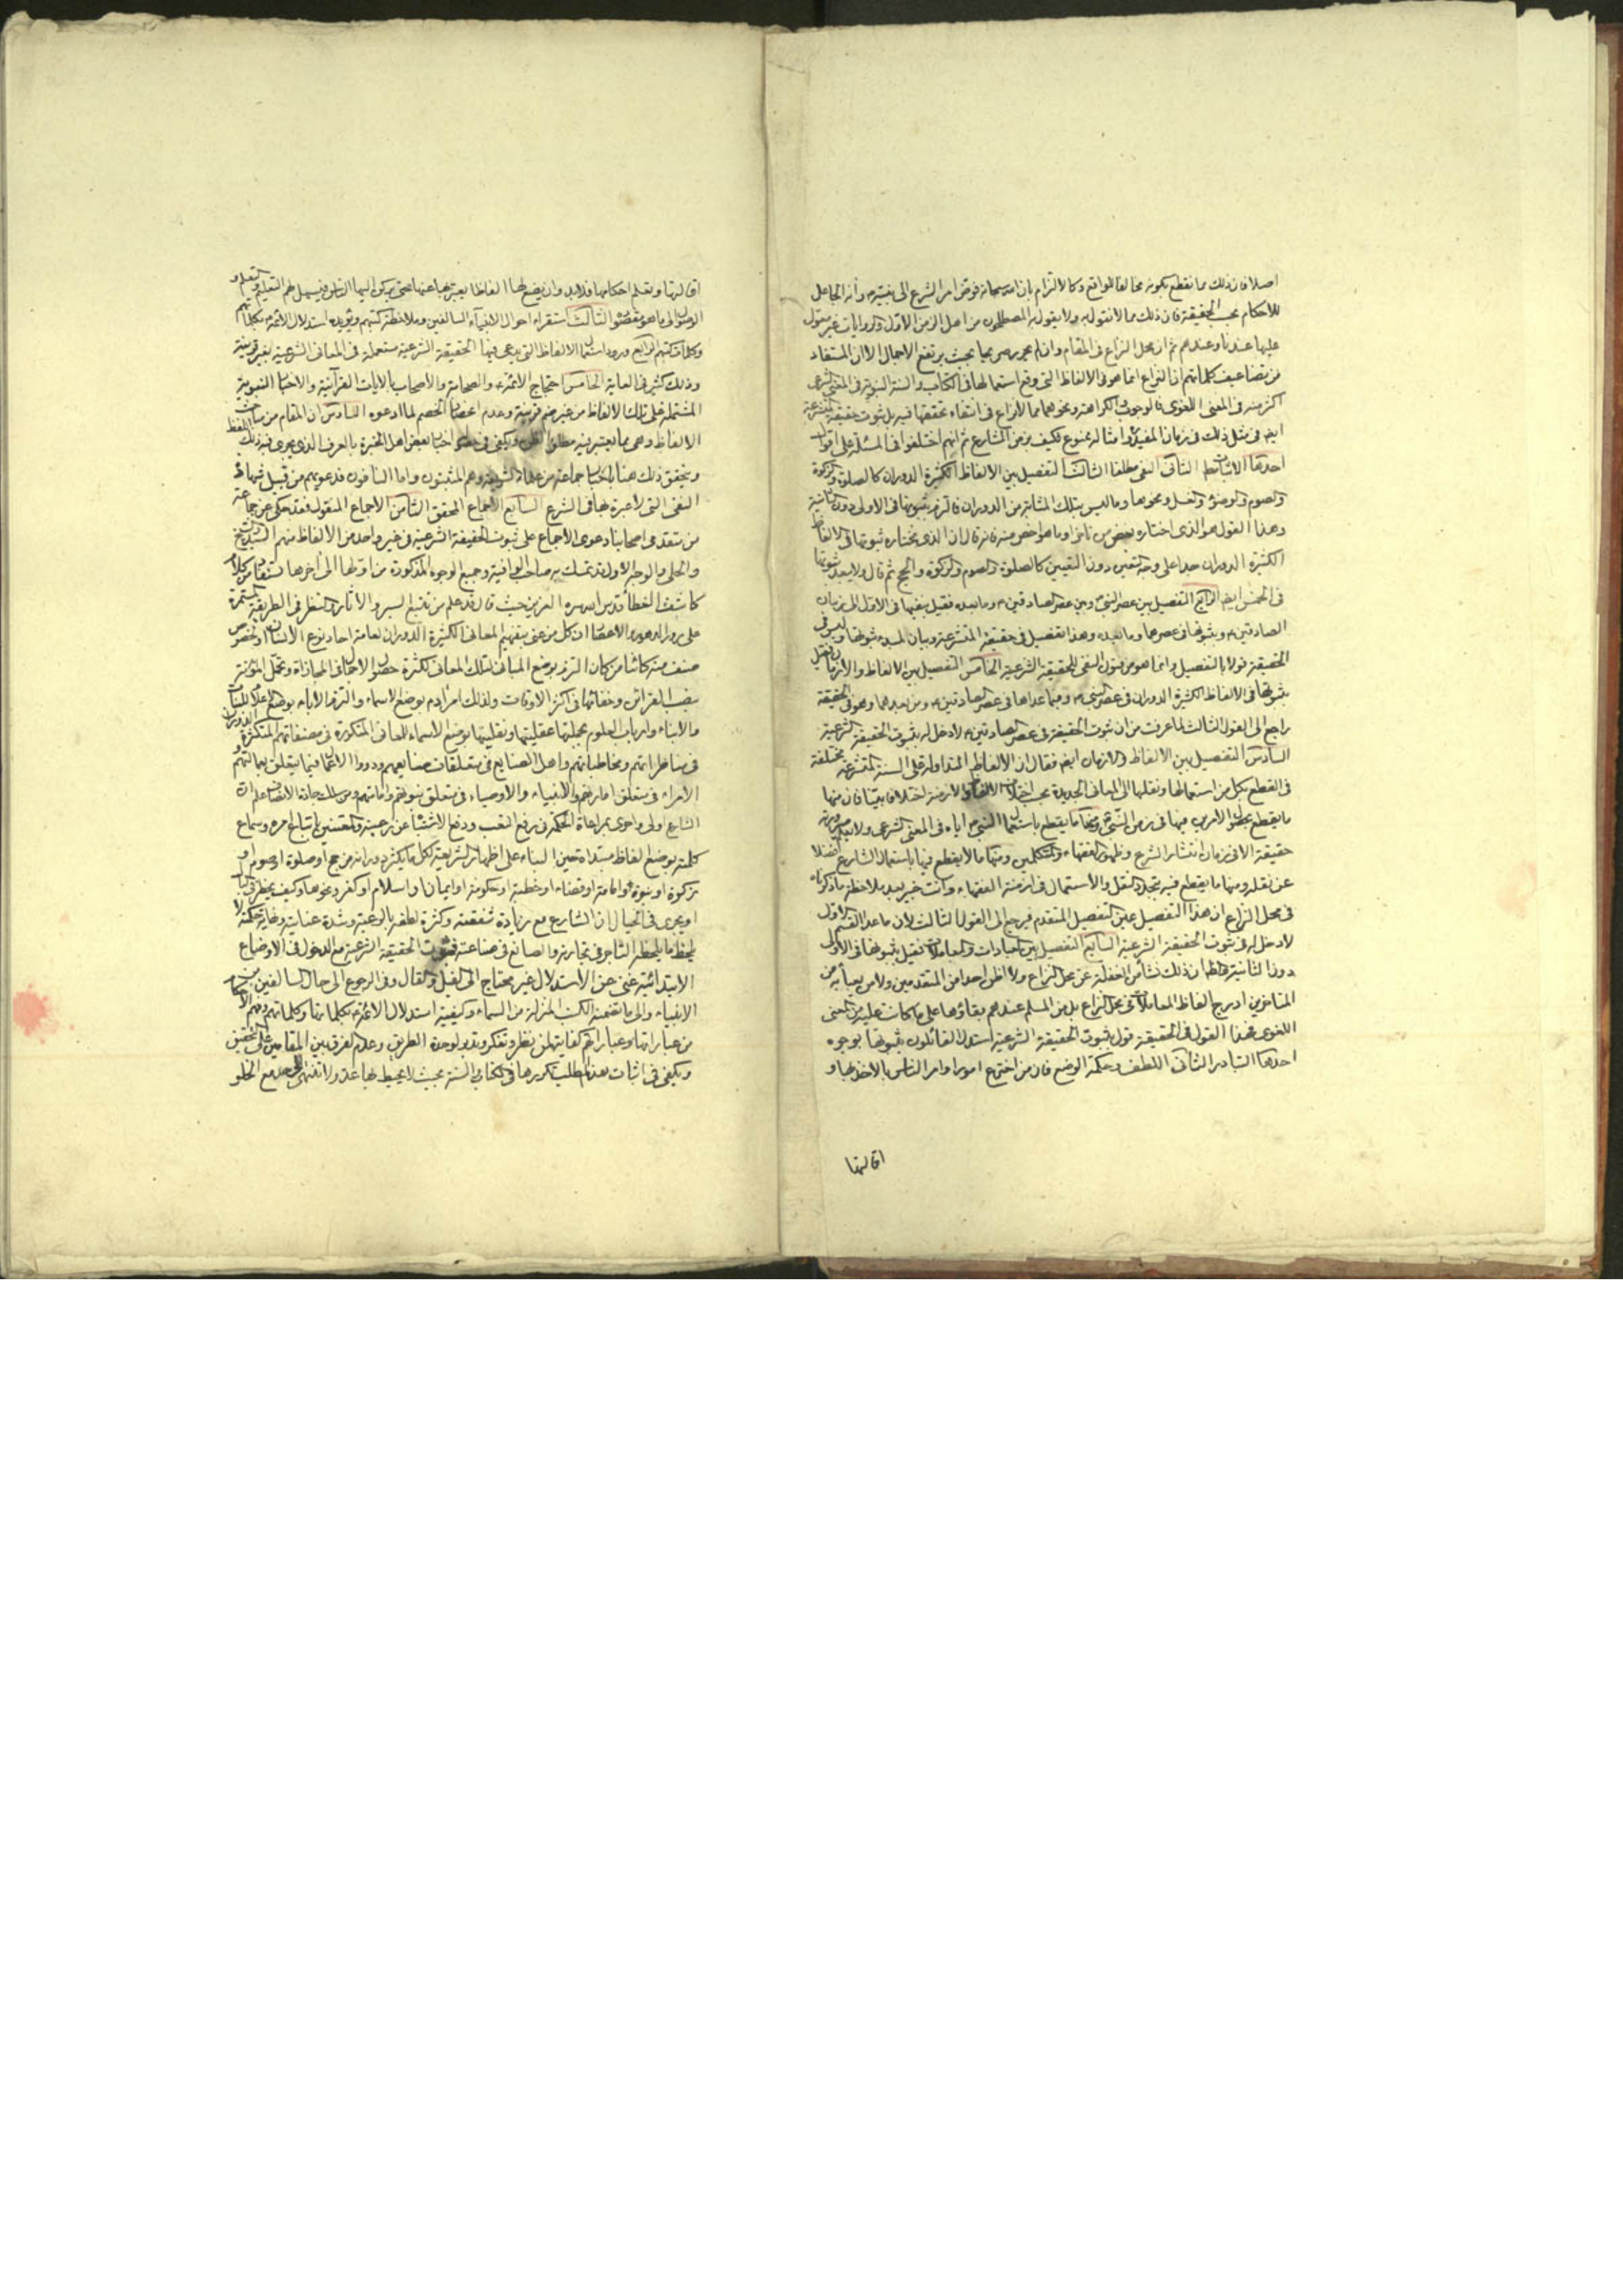 اصلا فان ذلك مما نقطع بكونه مخالفا للواقع وكالالتزام بان الله سبحانه فوض امر الشرع الى نبيه وأنه الجاعل
للاحكام بحسب الحقيقة فان ذلك مما لانقول به ولا يقول به المصطلحون من اهل الزمن الاول والروايات غير معمول
عليها عندنا وعندهم ثم ان محل النزاع في المقام وان لم يحرر بحيث يرتفع الاجمال الا ان المستفاد
من تضاعيف كلماتهم ان النزاع انما هو في الالفاظ التي وقع استعمالها في الكتاب والسنة النبوية في المعنى الشرعي
اكثر منه في المعنى اللغوي فالوجوب والكراهة ونحوهما مما لا نزاع في انتفاء تحققها فيه بل ثبوت حقيقة المتشرعة
ايضا في مثل ذلك في زمان المفيد وامثاله ممنوع فكيف بزمن الشارع ثم انهم اختلفوا في المسئلة على اقوال
احدها الاثبات مط الثاني النفي مطلقا الثالث التفصيل بين الالفاظ الكثيرة الدوران كالصلوة والزكوة
والصوم والوضوء والغسل ونحوها وما ليس بتلك المثابة من الدوران فالتزم بثبوتها في الاولى دون الثانية
وهذا القول هو الذي اختاره بعض من تاخر او ما هو اخص منه فانه قال ان الذي نختاره ثبوتها في الالفاظ
الكثيرة الدوران جدا على وجه التعين دون التعيين كالصلوة والصوم والزكوة والحج ثم قال ولا يبعد ثبوتها
في الخمس ايضا الرابع التفصيل بين عصر النبي وبين عصر الصادقين وما بعده فقيل بنفيها في الاول الى زمان
الصادقين وبثبوتها في عصرهما وما بعده وهذا تفصيل في حقيقة المتشرعة وبيان لمبدء ثبوتها وليس في
الحقيقة قولا بالتفصيل وانما هو من قول النفي للحقيقة الشرعية الخامس التفصيل بين الالفاظ والازمان فقيل
بثبوتها في الالفاظ الكثيرة الدوران في عصر النبي وفيما عداها في عصر الصادقين ومن بعدهما وهو في الحقيقة
راجع الى القول الثالث لما عرفت من ان ثبوت الحقيقة في عصر الصادقين لا دخل له بثبوت الحقيقة الشرعية
السادس التفصيل بين الالفاظ والازمان ايضا فقال ان الالفاظ المتداولة على السنة المتشرعة مختلفة
في القطع بكل من استعمالها ونقلها الى المعاني الجديدة بحسب اختلاف الالفاظ والازمنة اختلافا بينا فان منها
ما يقطع بحصول الامرين فيها في زمن النبي ومنها ما يقطع باستعمال النبي اياه في المعنى الشرعي ولا يعلم صيرورته
حقيقة الا في زمان انتشار الشرع وظهور الفقهاء والمتكلمين ومنها ما لا يقطع فيها باستعمال الشارع فضلا
عن نقله ومنها ما يقطع فيه بتجدد النقل والاستعمال في ازمنة الفقهاء وانت خبير بعد ملاحظة ما ذكرناه
في محل النزاع ان هذا التفصيل عين التفصيل المتقدم فيرجع الى القول الثالث لان ما عدا القسم الاول
لا دخل له في ثبوت الحقيقة الشرعية السابع التفصيل بين العبادات والمعاملات فقيل بثبوتها في الاول
دون الثانية والظاهر ان ذلك نشأ من الغفلة عن محل النزاع ولا اظن احدا من المتقدمين ولا من يعبأ به من
المتاخرين ادرج الفاظ المعاملات في محل النزاع بل من المسلم عندهم بقاؤها على ما كانت عليه من المعنى
اللغوي فهذا القول في الحقيقة قول بثبوت الحقيقة الشرعية استدل القائلون بثبوتها بوجوه
احدها التبادر الثاني اللطف وحكمة الوضع فان من اخترع امورا وامر الناس بالاخذ بها و
اقامتها
اقامتها وتعلم احكامها فلابد وان يضع لها الفاظا يعبر بها عنها حتى يركن اليها الناس ويسهل لهم التعليم والتعلم و
الوصول الى ما هو مقصود الثالث استقراء احوال الانبياء السالفين وملاحظة كتبهم ويؤيده استدلال الائمة بكلماتهم
وكلمات كتبهم الرابع ورود استعمال الالفاظ التي يدعى فيها الحقيقة الشرعية مستعملة في المعاني الشرعية بغير قرينة
وذلك كثير في الغاية الخامس احتجاج الائمة والصحابة والاصحاب بالايات القرآنية والاخبار النبوية
المشتملة على تلك الالفاظ من غير ضم قرينة وعدم اعتراض الخصم لما ادعوه السادس ان المقام من مباحث
الالفاظ وهي مما يعتبر فيه مطلق الظن ويكفي في حصوله اخبار بعض اهل الخبرة بالعرف الذي يجري فيه ذلك اللفظ
ويتحقق ذلك هنا باخبار جماعة من علماء الشريعة وهم المثبتون واما النافون فدعويهم من قبيل شهادة
النفي التي لا عبرة بها في الشرع السابع الاجماع المحقق الثامن الاجماع المنقول فقد حكي عن جماعة
من متقدمي اصحابنا دعوى الاجماع على ثبوت الحقيقة الشرعية في غير واحد من الالفاظ منهم السيد والشيخ
والحلي والوجه الاول قد تمسك به صاحب الوافية وجميع الوجوه المذكورة من اولها الى آخرها تستفاد من كلام
كاشف الغطاء قدس الله سره العزيز حيث قال قد علم من تتبع السير والآثار والنظر في الطريقة المستمرة
على مرور الدهور والاعصار ان كل من عني بتفهيم المعاني الكثيرة الدوران لعامة احاد نوع الانسان او لخصوص
صنف منه كائنا من كان التزم بوضع المباني لتلك المعاني لكثرة حصول الاجمال في المجازاة وتحمل المؤنة
بنصب القرائن وخفائها في اكثر الاوقات ولذلك امر آدم بوضع الاسماء والتزم الاباء بوضع الاعلام للبنات
والابناء وارباب العلوم بجملتها عقليتها ونقليتها بوضع الاسماء للمعاني المتكررة في مصنفاتهم المتكثرة الدوران
في مناظراتهم ومخاطباتهم واهل الصنايع في متعلقات صنايعهم ودووا الاعمال فيما يتعلق بعمالتهم و
الامراء في متعلق امارتهم والانبياء والاوصياء في متعلق نبوتهم وامامتهم ومن سلك جادة الانصاف علم ان
الشارع اولى واحرى بمراعاة الحكمة في رفع التعب ودفع الاشتباه عن رعيته والمعتنين باتباع امره وسماع
كلمته بوضع الفاظ مبتداة حين البناء على اظهار الشريعة لكل ما يكثر دورانه من حج او صلوة او صوم او
زكوة او نبوة وامامة او قضاء او خطبة او حكومة او ايمان او اسلام او كفر ونحوها وكيف يخطر في البال
او يجري في الخيال ان الشارع مع زيادة شفقته وكثرة لطفه بالرعية وشدة عنايته ونهاية حكمته لا
يلحظ ما يلحظه التاجر في تجارته والصانع في صناعته فثبوت الحقيقة الشرعية مع الدخول في الاوضاع
الابتدائية غني عن الاستدلال غير محتاج الى القيل والقال وفي الرجوع الى حال السالفين من
الانبياء والى ما تضمنه الكتب المنزلة من السماء وكيفية استدلال الائمة بكلماتها وكلماتهم وفهم الاحكام
من عباراتها وعباراتهم كفاية لمن نظر وتفكر وتدبر لوحدة الطريق وعدم الفرق بين المقامين على التحقيق
ويكفي في اثبات هذا المطلب تكررها في الكتاب والسنة بحيث لا يحيط بها عدد ولا تنتهي الى حد مع الخلو